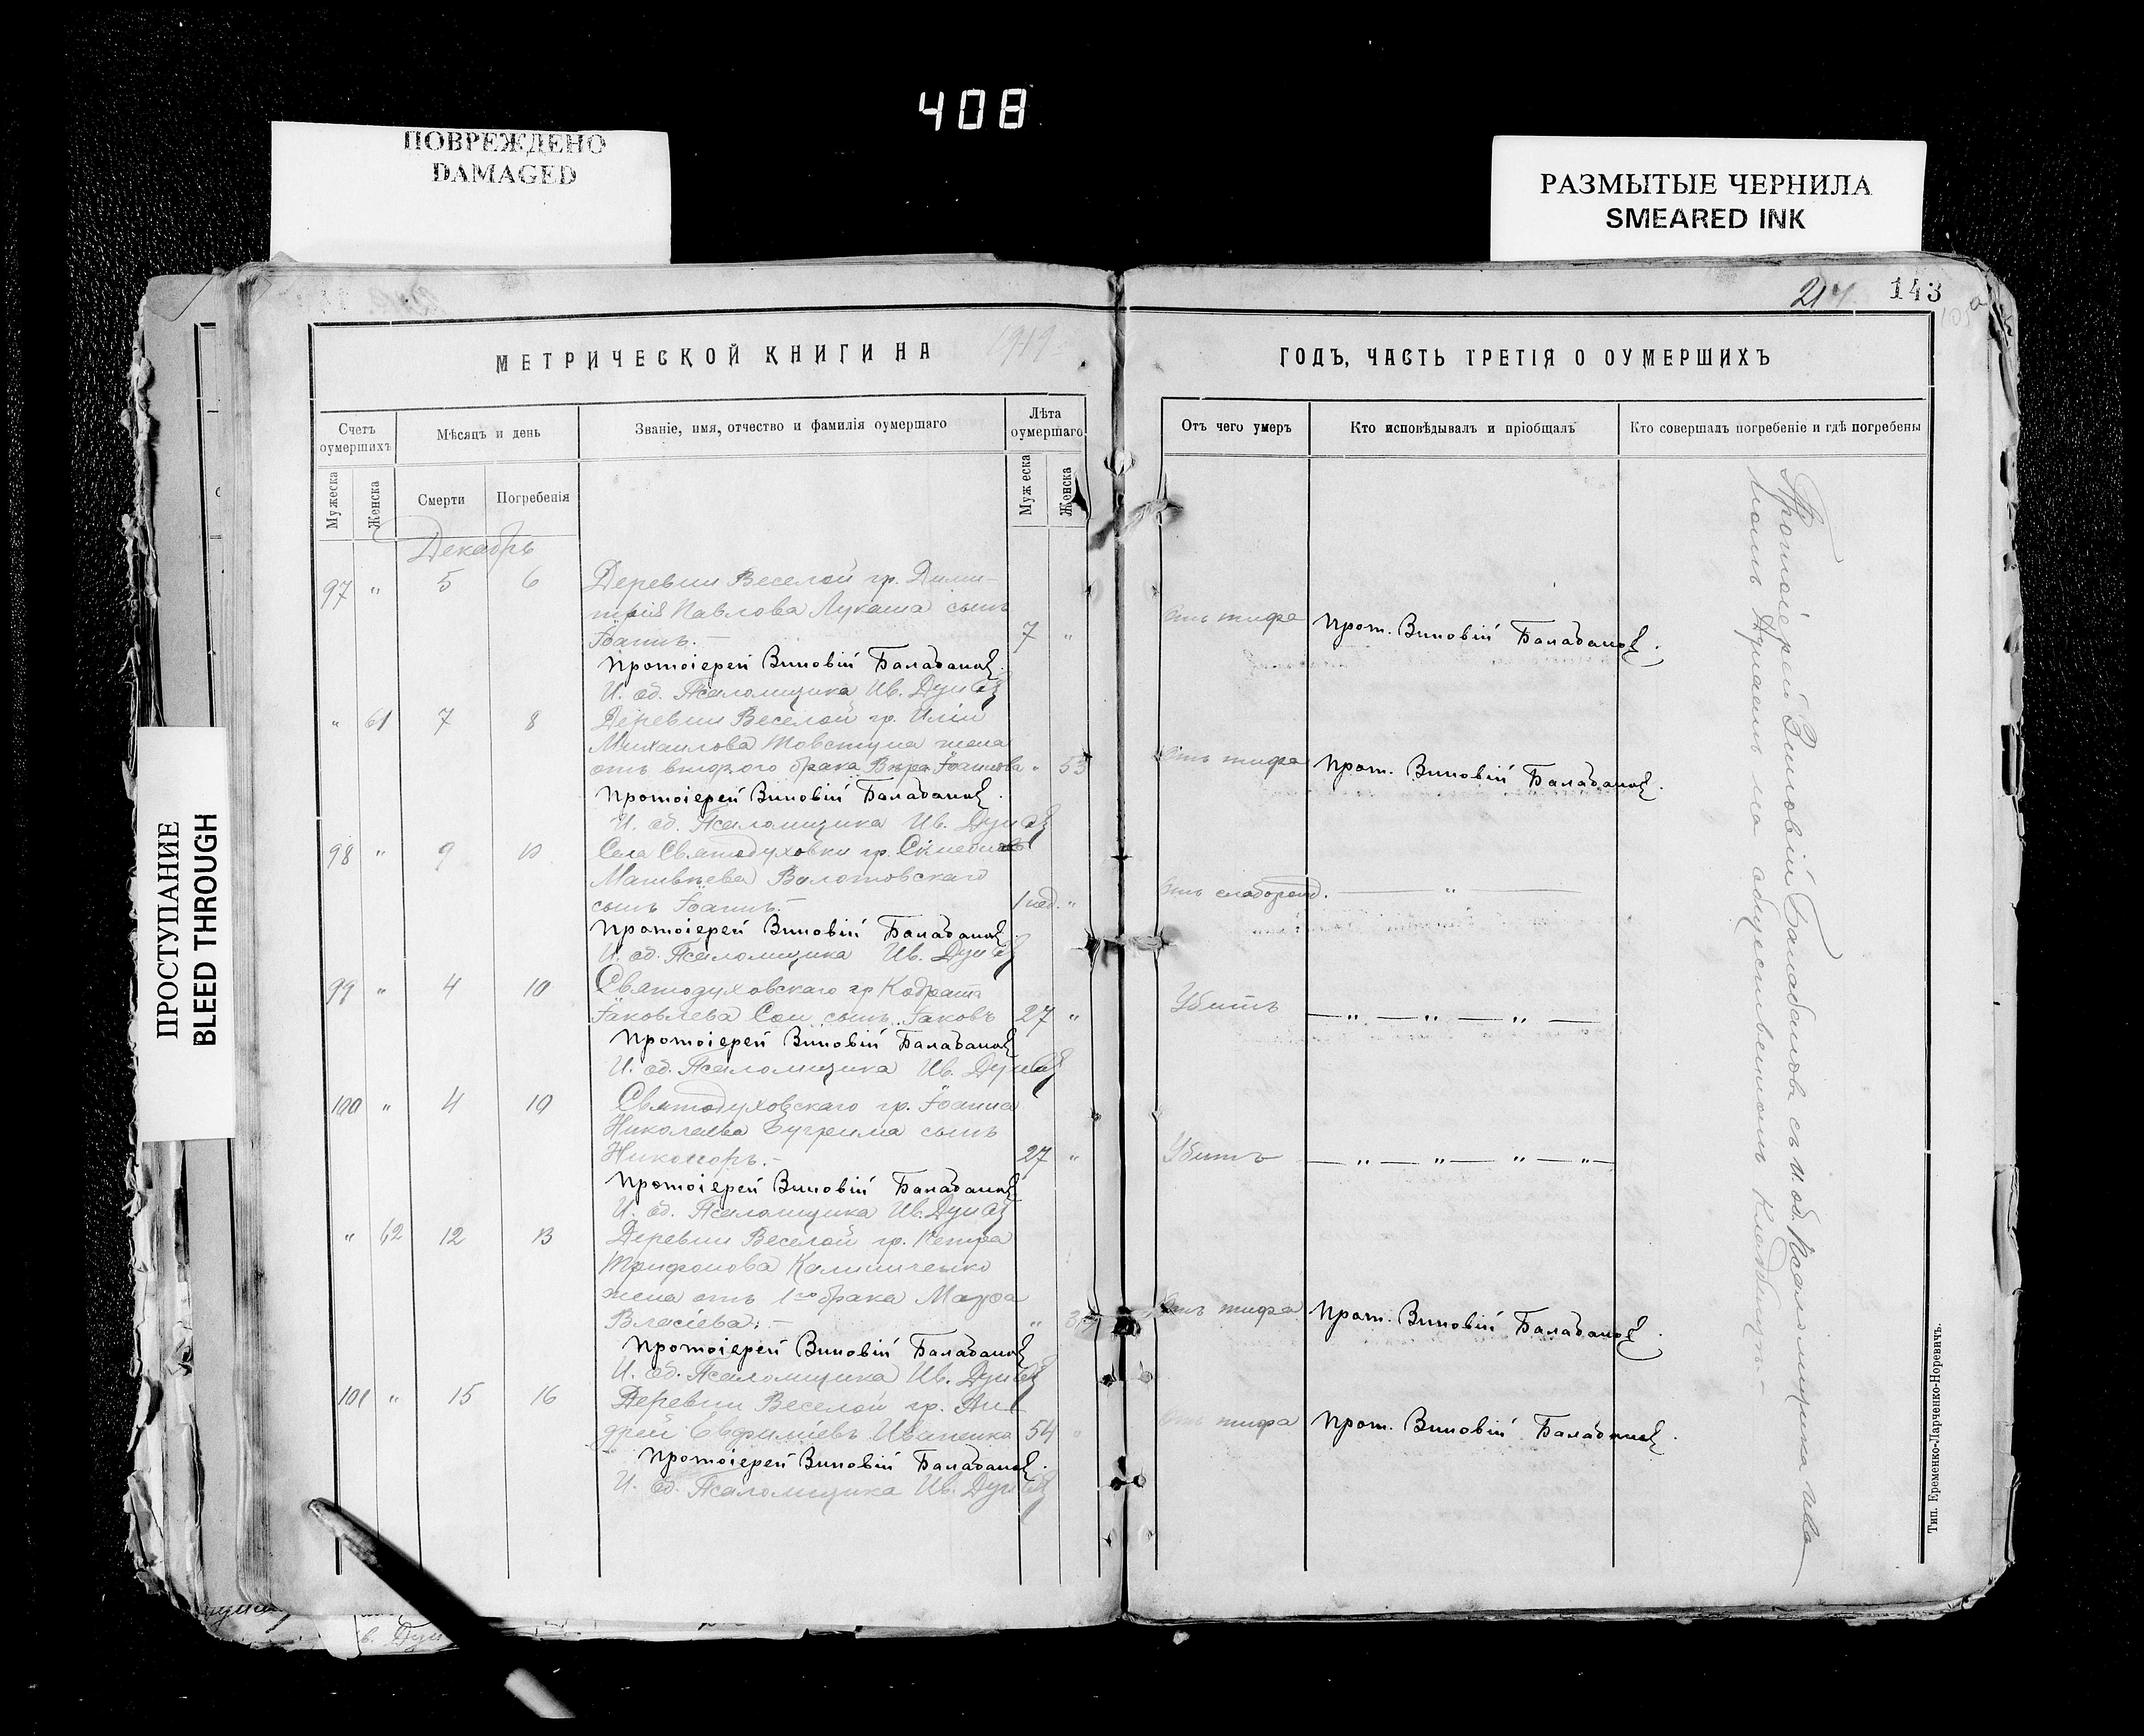 408
ПОВРЕЖДЕНО
DAMAGED
РАЗМЫТЫЕ ЧЕРНИЛА
SMEARED INK
ПРОСТУПАНИЕ
BLEED THROUGH
143
МЕТРИЧЕСКОЙ КНИГИ НА 1919
ГОДЪ, ЧАСТЬ ТРЕТІЯ О ОУМЕРШИХЪ
Счетъ оумершихъ
Мѣсяцъ и день
Званіе, имя, отчество и фамилія оумершаго
Лѣта оумершаго
Отъ чего умеръ
Кто исповѣдывалъ и пріобщалъ
Кто совершалъ погребеніе и гдѣ погребены
Мужеска
Женска
Смерти
Погребенія
Мужеска
Женска
Декабрь
97 " 5 6 Деревни Веселой гр. Дими-
трія Павлова Лукаша сынъ
Іоаннъ.— 7 " Отъ тифа Прот. Зиновій Балабанов.
Протоіерей Зиновій Балабанов.
И. об. Псаломщика Ив. Дун
" 61 7 8 Деревни Веселой гр. Иліи
Михаилова Товстуна жена
отъ второго брака Вѣра Іоаннова " 53 Отъ тифа Прот. Зиновій Балабанов.
Протоіерей Зиновій Балабанов.
И. об. Псаломщика Ив. Дун
98 " 9 10 Села Святодуховки гр.
Матвѣева Волотовскаго
сынъ Іоаннъ.— 1 нед. " Отъ слаборожд. — " —
Протоіерей Зиновій Балабанов.
И. об. Псаломщика Ив. Дун
99 " 4 10 Святодуховскаго гр. Кодрата
Іаковлева Сои сынъ Іаковъ 27 " Убитъ — " — " — " —
Протоіерей Зиновій Балабанов
И. об. Псаломщика Ив. Дун
100 " 4 10 Святодуховскаго гр. Іоанна
Николаева Бугрима сынъ
Никоноръ.— 27 " Убитъ — " — " — " — " —
Протоіерей Зиновій Балабанов
И. об. Псаломщика Ив. Дун
" 62 12 13 Деревни Веселой гр. Петра
Трифонова Калиниченко
жена отъ 1го брака Марфа
Власіева.— " Отъ тифа Прот. Зиновій Балабанов.
Протоіерей Зиновій Балабанов
И. об. Псаломщика Ив. Дун
101 " 15 16 Деревни Веселой гр. Ан-
дрей Евфиміевъ Иваненко 54 " Отъ тифа Прот. Зиновій Балабанов.
Протоіерей Зиновій Балабанов.
И. об. Псаломщика Ив. Дун
Протоіерей Зиновій Балабановъ съ и. об. Псаломщика Ива
номъ на общественномъ кладбищѣ.—
Тип. Еременко-Ларченко-Норевичъ.